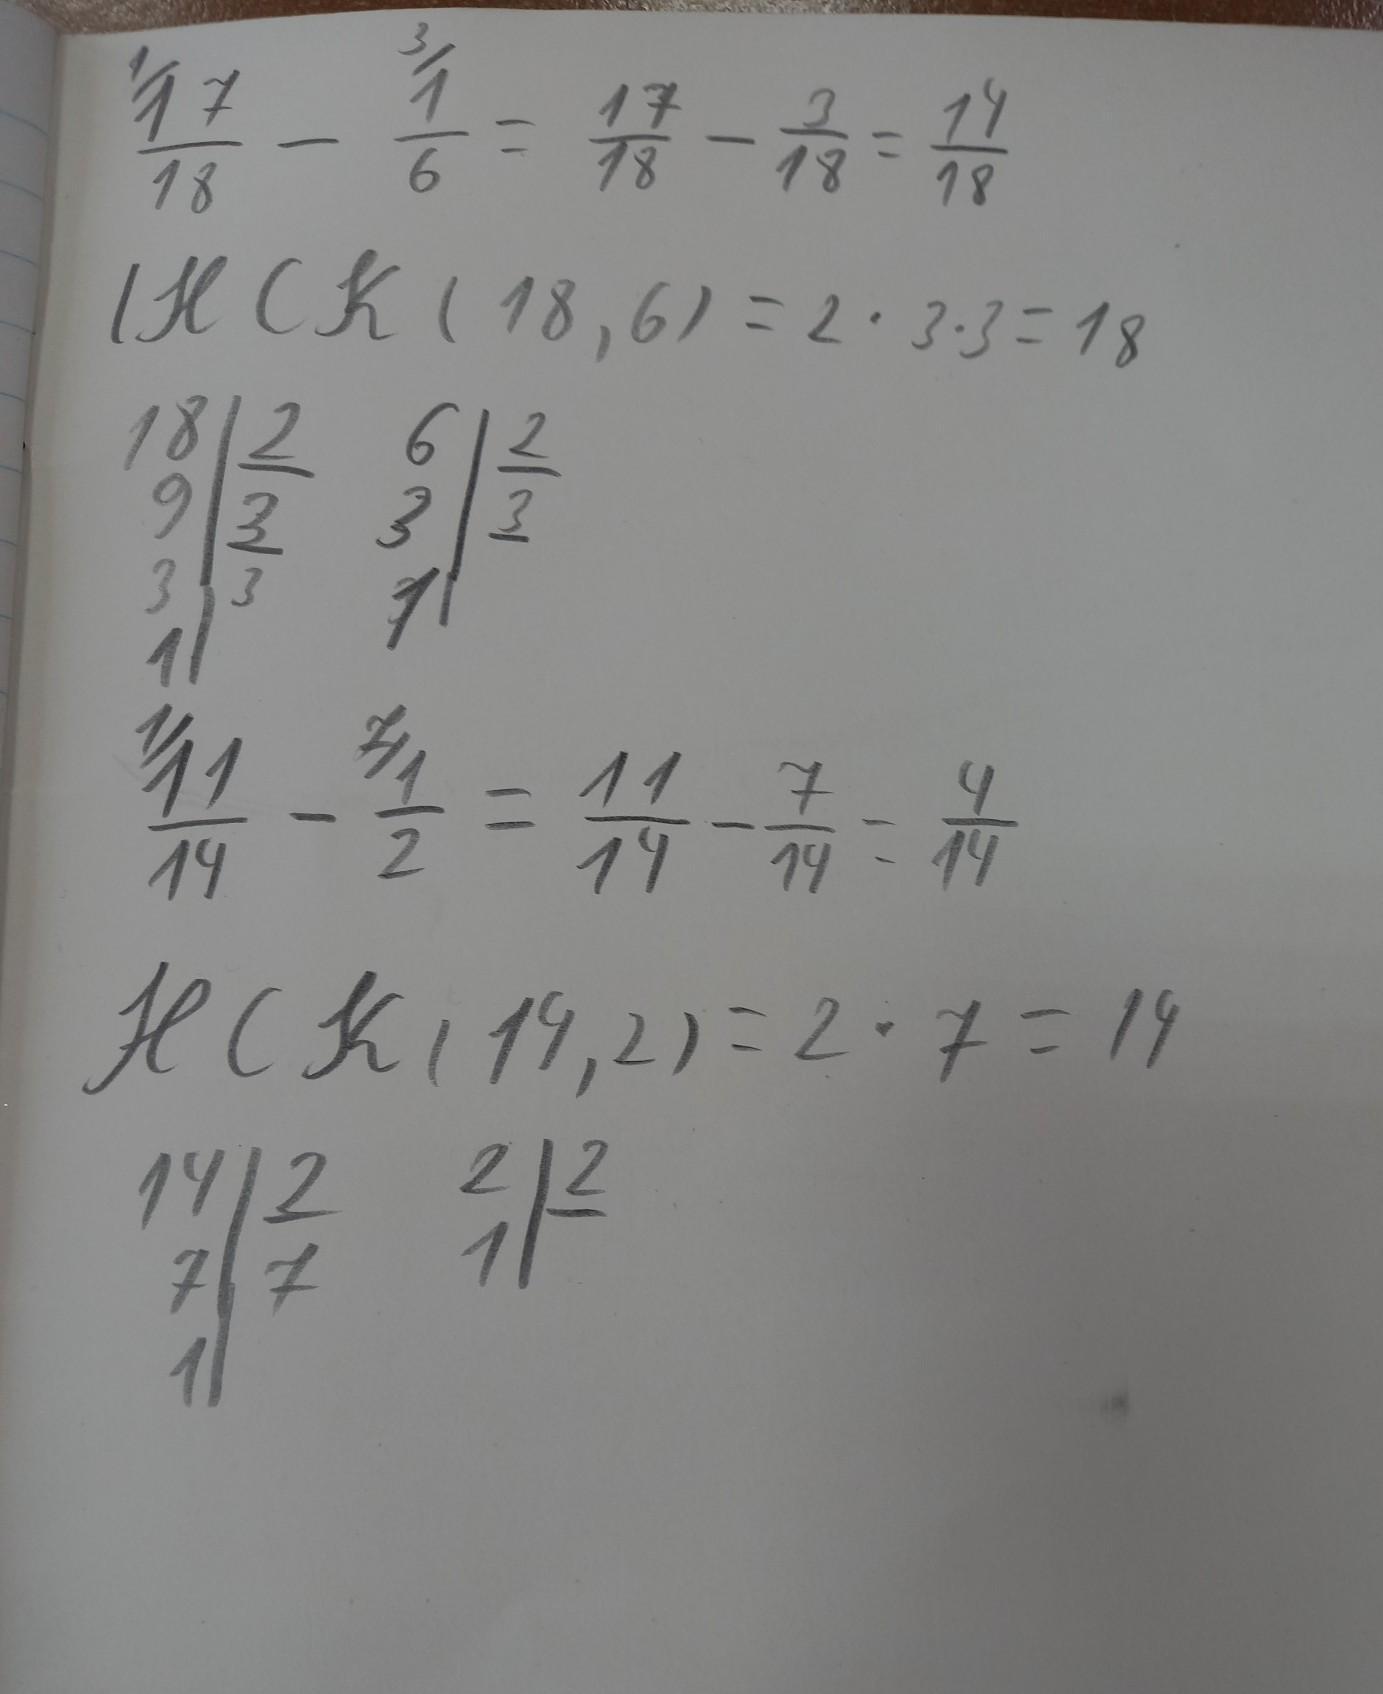 1/ 17/18 - 3/ 1/6 = 17/18 - 3/18 = 14/18
НСК(18,6) = 2·3·3 = 18
18|2 6|2
9|3 3|3
3|3 1|
1|
1/ 11/14 - 7/ 1/2 = 11/14 - 7/14 = 4/14
НСК(14,2) = 2·7 = 14
14|2 2|2
7|7 1|
1|